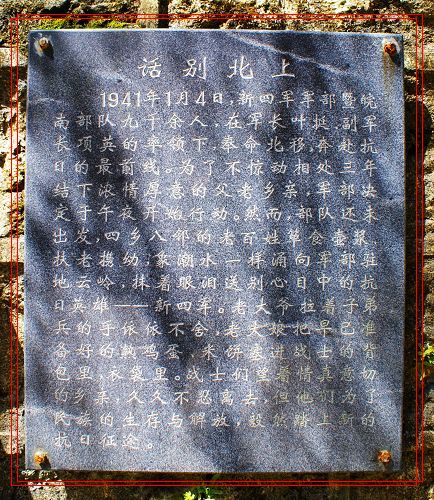 话别北上
1941年1月4日,新四军军部暨皖
南部队九千余人,在军长叶挺,副军
长项英的率领下,奉命北移,奔赴抗
日的最前线。为了不惊动相处三年
结下浓情厚意的父老乡亲,军部决
定于午夜开始行动。然而,部队还未
出发,四乡八邻的老百姓箪食壶浆,
扶老携幼,象潮水一样涌向军部驻
地云岭,抹着眼泪送别心目中的抗
日英雄——新四军。老大爷拉着子弟
兵的手依依不舍,老大娘把早已准
备好的熟鸡蛋,米饼塞进战士的背
包里,衣袋里。战士们望着情真意切
的乡亲,久久不忍离去,但他们为了
民族的生存与解放,毅然踏上新的
抗日征途。